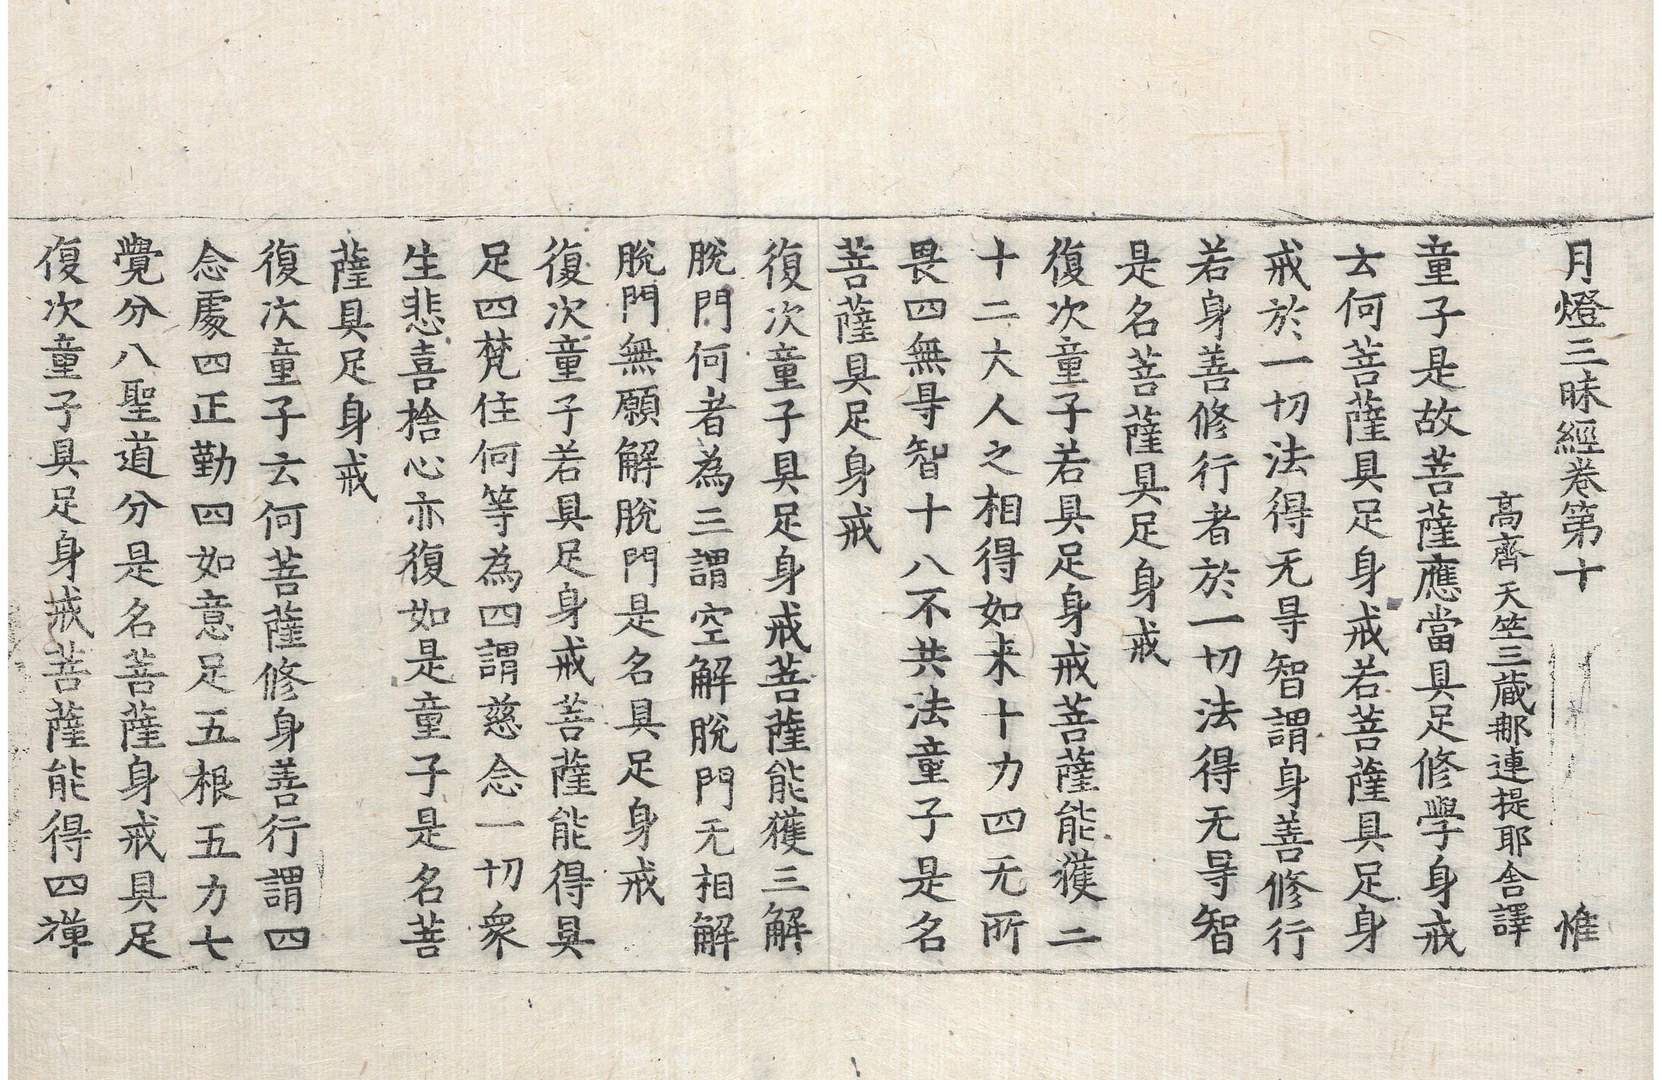 月燈三昧經卷第十 惟
高齊天竺三藏那連提耶舍譯
童子是故菩薩應當具足修學身戒
云何菩薩具足身戒若菩薩具足身
戒於一切法得无㝵智謂身善修行
若身善修行者於一切法得无㝵智
是名菩薩具足身戒
復次童子若具足身戒菩薩能獲二
十二大人之相得如来十力四无所
畏四無㝵智十八不共法童子是名
菩薩具足身戒
復次童子具足身戒菩薩能獲三解
脫門何者為三謂空解脫門无相解
脫門無願解脫門是名具足身戒
復次童子若具足身戒菩薩能得具
足四梵住何等為四謂慈念一切衆
生悲喜捨心亦復如是童子是名菩
薩具足身戒
復次童子云何菩薩修身善行謂四
念處四正勤四如意足五根五力七
覺分八聖道分是名菩薩身戒具足
復次童子具足身戒菩薩能得四禪